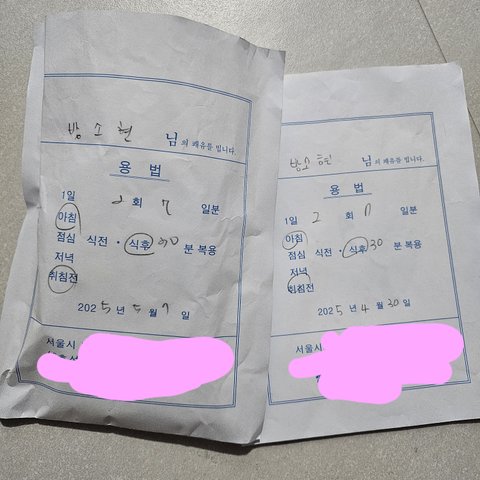 방소현 님의 쾌유를 빕니다.
용법
1일 2회 7 일분
아침
점심 식전 · 식후 30 분 복용
저녁
취침전
2025년 5월 7일
서울시
방소현 님의 쾌유를 빕니다.
용법
1일 2회 7 일분
아침
점심 식전 · 식후 30 분 복용
저녁
취침전
2025년 4월 30일
서울시